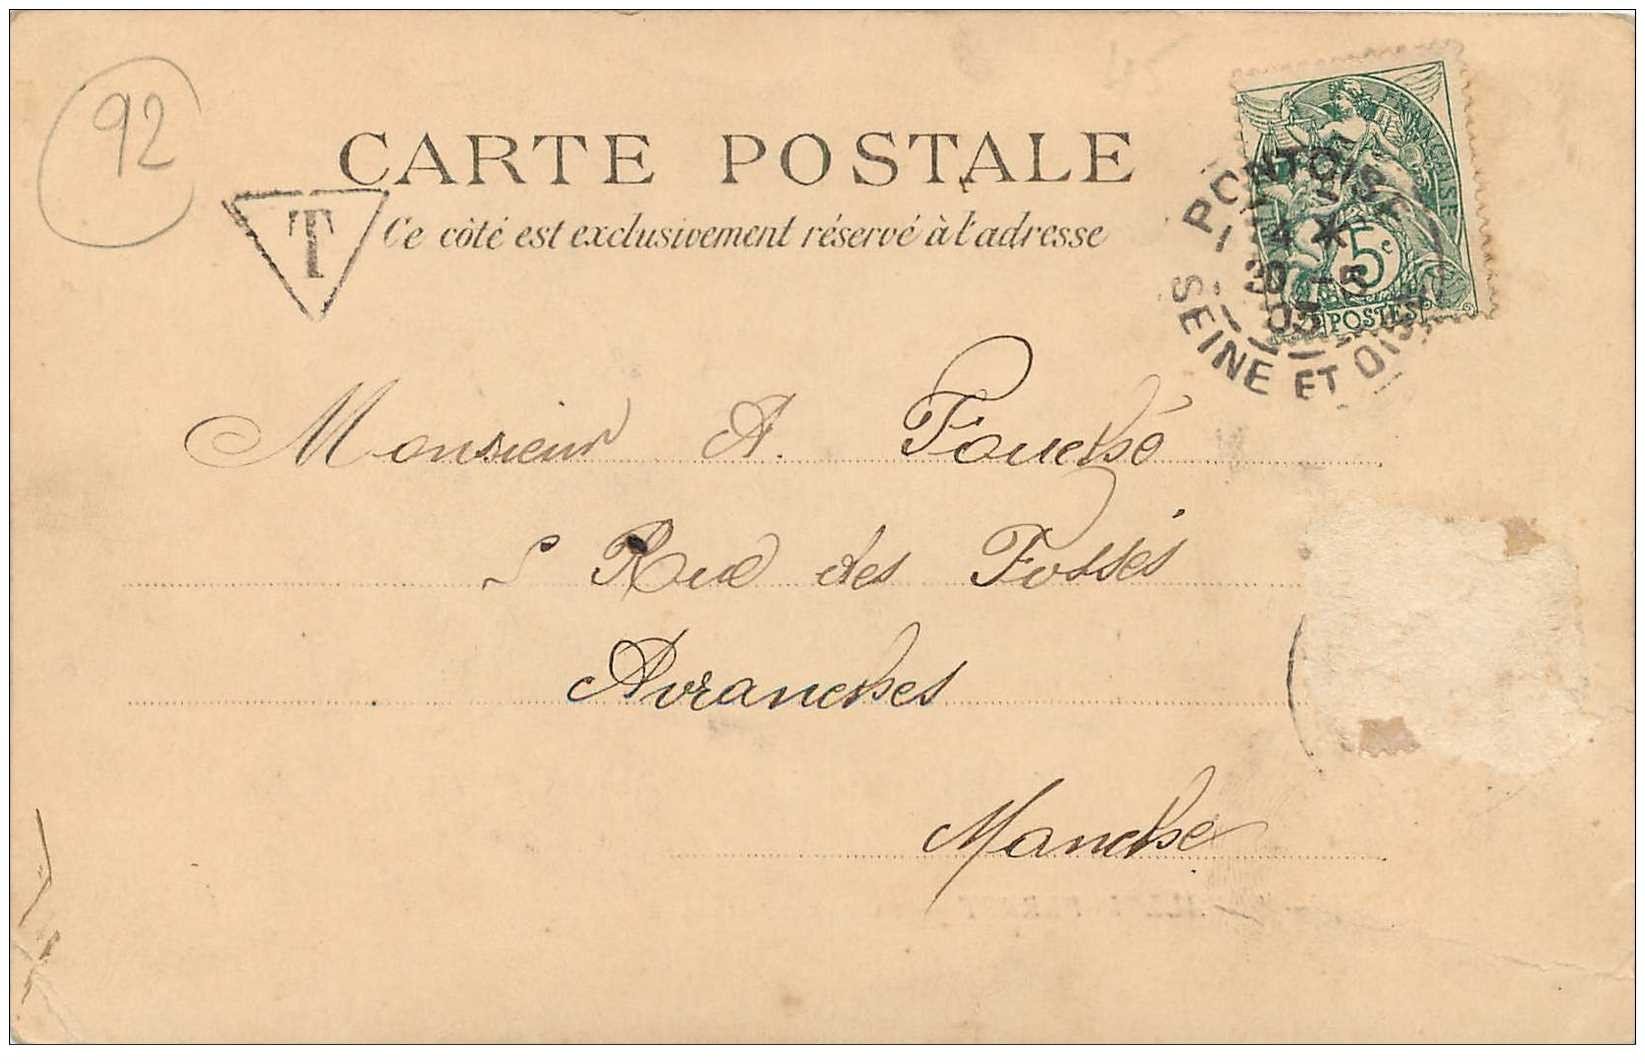 92
CARTE POSTALE
T
Ce côté est exclusivement réservé à l'adresse
RÉPUBLIQUE FRANÇAISE
5c
POSTES
PONTOISE
4 *
30 -5
03
SEINE ET OISE
Monsieur A. Fouché
5 Rue des Fossés
Avranches
Manche